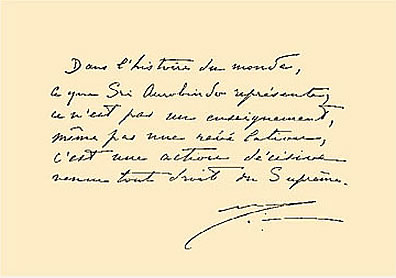 Dans l'histoire du monde,
ce que Sri Aurobindo représente,
ce n'est pas un enseignement,
même pas une révélation,
c'est une action décisive
venue tout droit du Suprême.